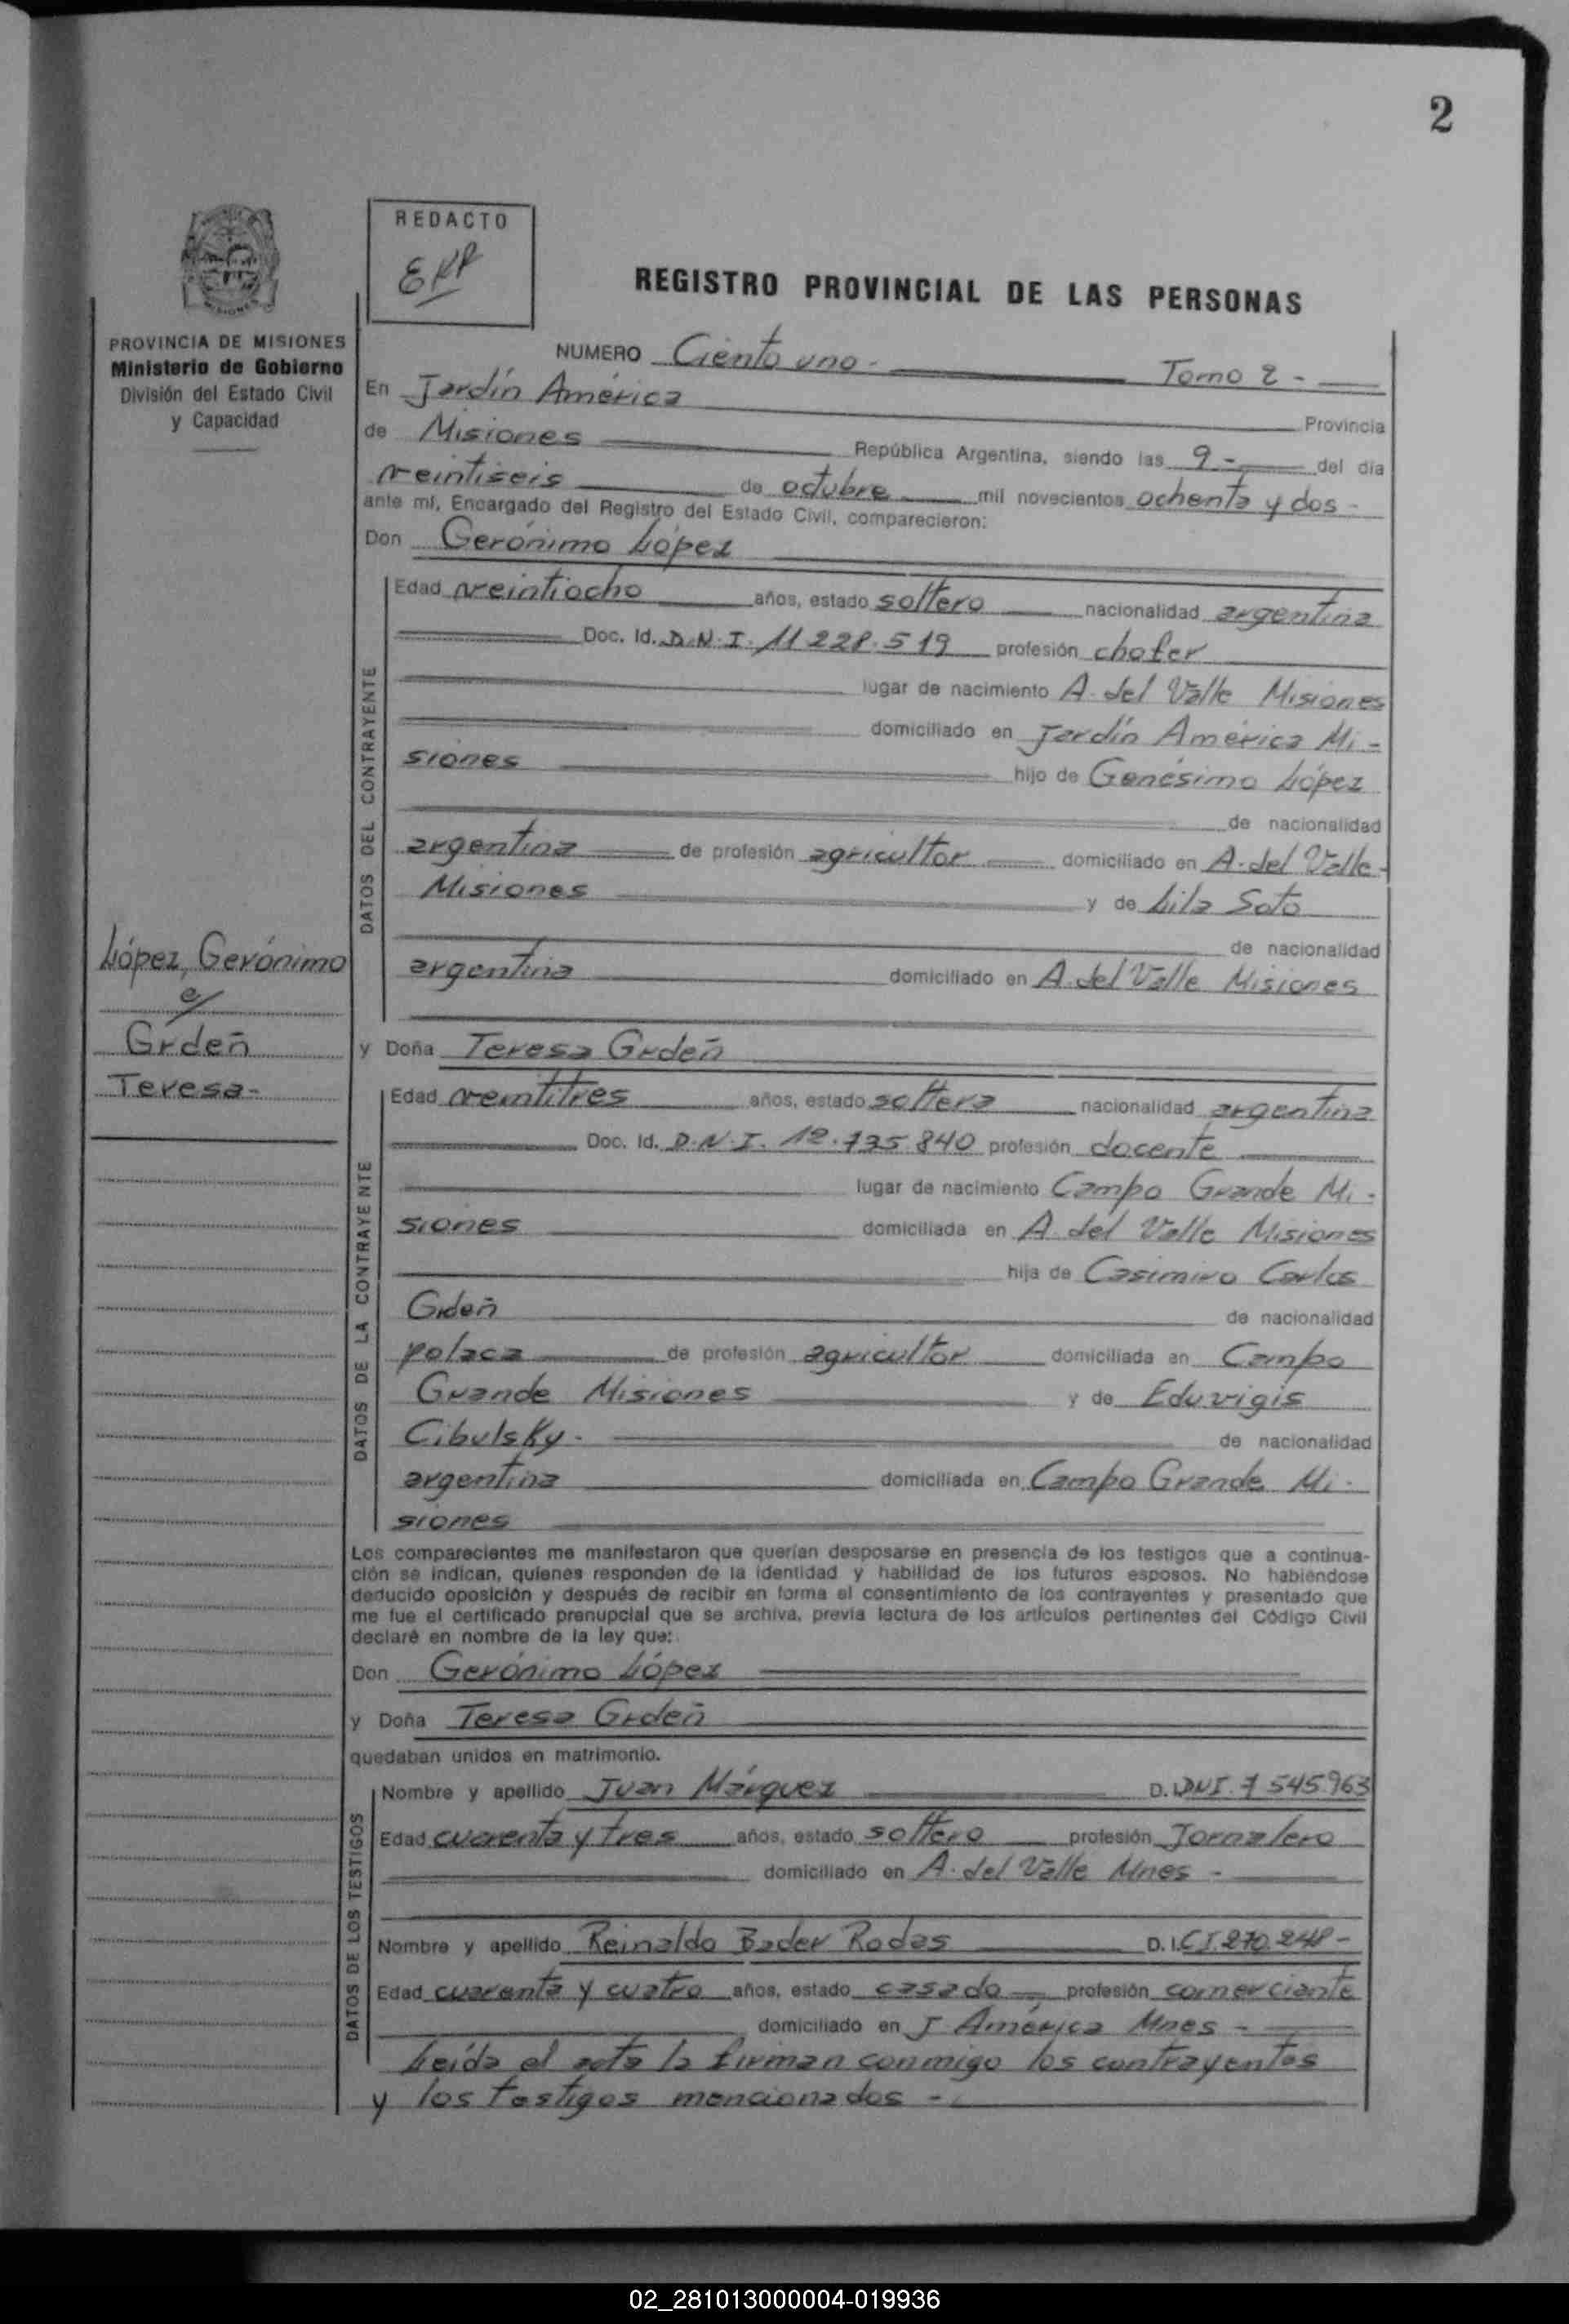 2
REDACTO
REGISTRO PROVINCIAL DE LAS PERSONAS
PROVINCIA DE MISIONES
Ministerio de Gobierno
División del Estado Civil
y Capacidad
NUMERO Ciento uno - Tomo 2 -
En Jardín América Provincia
de Misiones República Argentina, siendo las 9 - del día
veintiseis de octubre mil novecientos ochenta y dos -
ante mí, Encargado del Registro del Estado Civil, comparecieron:
Don Gerónimo López
DATOS DEL CONTRAYENTE
Edad veintiocho años, estado soltero nacionalidad argentina
Doc. Id. D.N.I. 11 228.519 profesión chofer
lugar de nacimiento A. del Valle Misiones
domiciliado en Jardín América Mi-
siones hijo de Genésimo López
de nacionalidad
argentina de profesión agricultor domiciliado en A. del Valle-
Misiones y de Lila Soto
de nacionalidad
argentina domiciliado en A. del Valle Misiones
López, Gerónimo
c/
Grdeñ
Teresa-
y Doña Teresa Grdeñ
DATOS DE LA CONTRAYENTE
Edad veintitres años, estado soltera nacionalidad argentina
Doc. Id. D.N.I. 12.735.840 profesión docente
lugar de nacimiento Campo Grande Mi-
siones domiciliada en A. del Valle Misiones
hija de Casimiro Carlos
Grdeñ de nacionalidad
polaca de profesión agricultor domiciliada en Campo
Grande Misiones y de Eduvigis
Cibulsky. de nacionalidad
argentina domiciliada en Campo Grande Mi-
siones
Los comparecientes me manifestaron que querían desposarse en presencia de los testigos que a continua-
ción se indican, quienes responden de la identidad y habilidad de los futuros esposos. No habiéndose
deducido oposición y después de recibir en forma el consentimiento de los contrayentes y presentado que
me fue el certificado prenupcial que se archiva, previa lectura de los artículos pertinentes del Código Civil
declaré en nombre de la ley que:
Don Gerónimo López
y Doña Teresa Grdeñ
quedaban unidos en matrimonio.
DATOS DE LOS TESTIGOS
Nombre y apellido Juan Márquez D.I. DNI. 7 545.963
Edad cuarenta y tres años, estado soltero profesión Jornalero
domiciliado en A. del Valle Mnes -
Nombre y apellido Reinaldo Bader Rodas D.I. C I. 270.248 -
Edad cuarenta y cuatro años, estado casado profesión comerciante
domiciliado en J. América Mnes -
Leída el acta la firman conmigo los contrayentes
y los testigos mencionados -
02_281013000004-019936